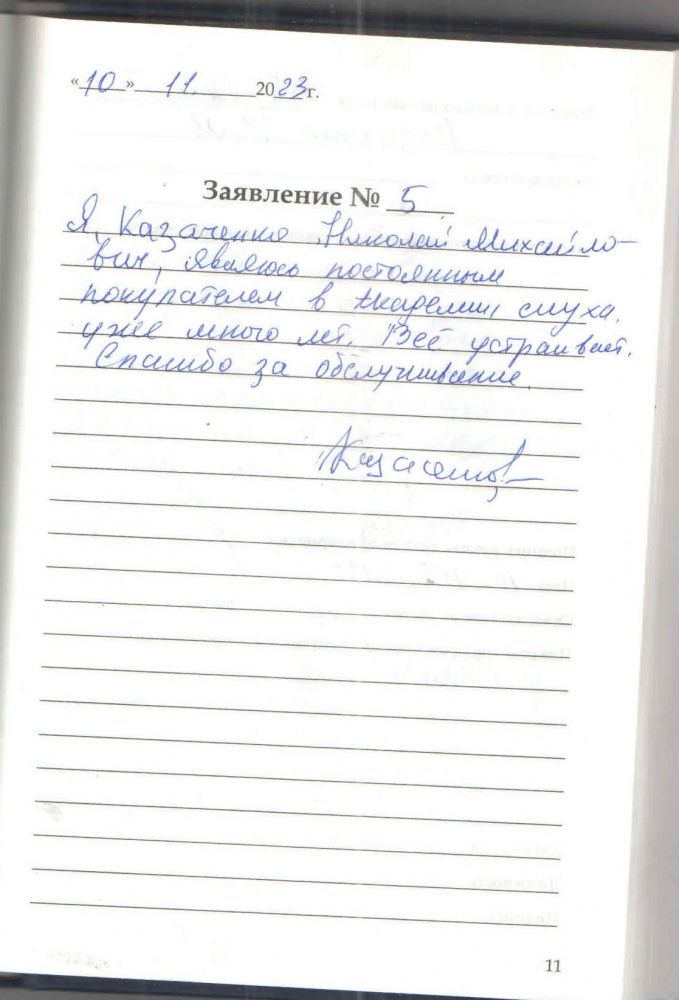 «10» 11. 2023г.
Заявление № 5
Я, Казаченко Николай Михайло-
вич, являюсь постоянным
покупателем в Академии слуха.
уже много лет. Всё устраивает.
Спасибо за обслуживание.
11